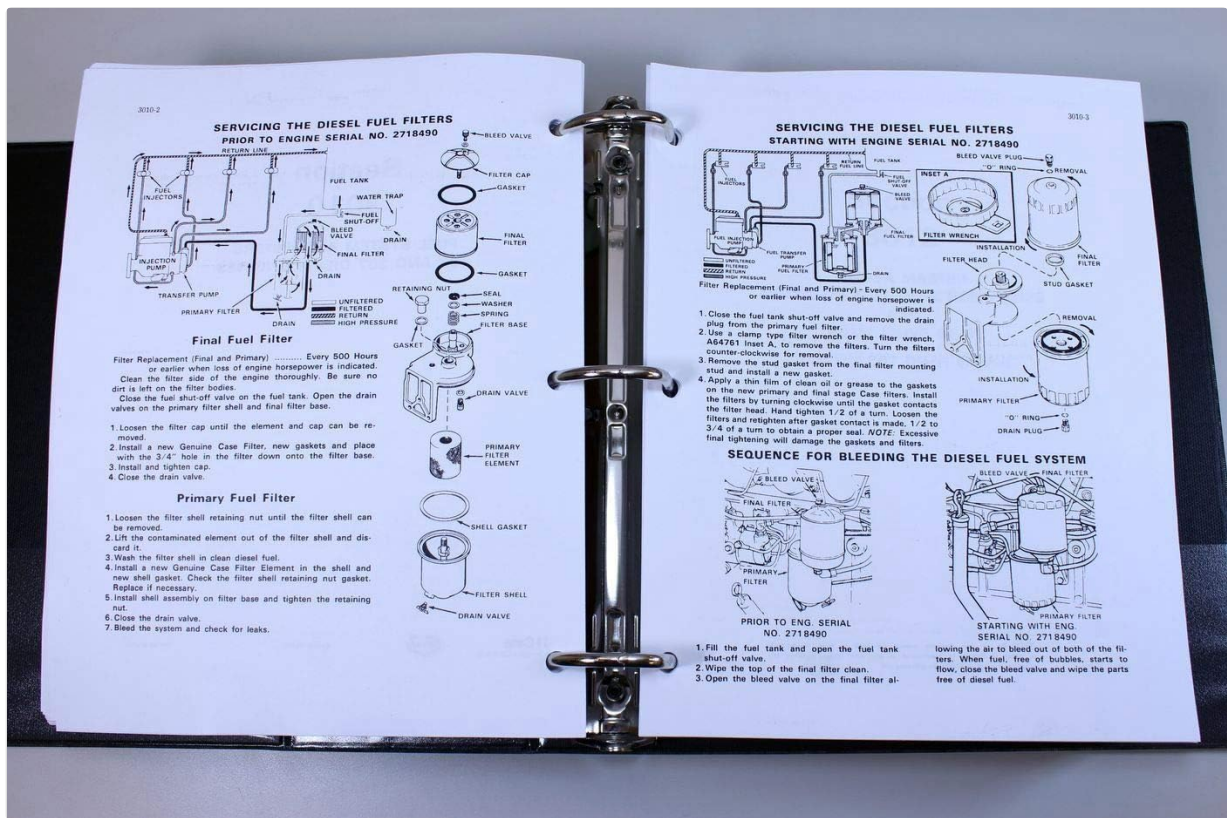 3010-2
SERVICING THE DIESEL FUEL FILTERS
PRIOR TO ENGINE SERIAL NO. 2718490
RETURN LINE
FUEL
INJECTORS
FUEL TANK
WATER TRAP
FUEL
SHUT-OFF
BLEED
VALVE
DRAIN
FINAL FILTER
INJECTION
PUMP
DRAIN
TRANSFER PUMP
PRIMARY FILTER
DRAIN
UNFILTERED
FILTERED
RETURN
HIGH PRESSURE
BLEED VALVE
FILTER CAP
GASKET
FINAL
FILTER
GASKET
RETAINING NUT
SEAL
WASHER
SPRING
FILTER BASE
GASKET
DRAIN VALVE
PRIMARY
FILTER
ELEMENT
SHELL GASKET
FILTER SHELL
DRAIN VALVE
Final Fuel Filter
Filter Replacement (Final and Primary) .......... Every 500 Hours
or earlier when loss of engine horsepower is indicated.
Clean the filter side of the engine thoroughly. Be sure no
dirt is left on the filter bodies.
Close the fuel shut-off valve on the fuel tank. Open the drain
valves on the primary filter shell and final filter base.
1. Loosen the filter cap until the element and cap can be re-
moved.
2. Install a new Genuine Case Filter, new gaskets and place
with the 3/4" hole in the filter down onto the filter base.
3. Install and tighten cap.
4. Close the drain valve.
Primary Fuel Filter
1. Loosen the filter shell retaining nut until the filter shell can
be removed.
2. Lift the contaminated element out of the filter shell and dis-
card it.
3. Wash the filter shell in clean diesel fuel.
4. Install a new Genuine Case Filter Element in the shell and
new shell gasket. Check the filter shell retaining nut gasket.
Replace if necessary.
5. Install shell assembly on filter base and tighten the retaining
nut.
6. Close the drain valve.
7. Bleed the system and check for leaks.
3010-3
SERVICING THE DIESEL FUEL FILTERS
STARTING WITH ENGINE SERIAL NO. 2718490
FUEL
INJECTORS
RETURN
FUEL LINE
FUEL TANK
FUEL
SHUT-OFF
VALVE
BLEED
VALVE
FUEL INJECTION
PUMP
FINAL
FUEL FILTER
FUEL TRANSFER
PUMP
PRIMARY
FUEL FILTER
DRAIN
UNFILTERED
FILTERED
RETURN
HIGH PRESSURE
BLEED VALVE PLUG
"O" RING
REMOVAL
INSET A
FILTER WRENCH
INSTALLATION
FILTER HEAD
FINAL
FILTER
STUD GASKET
REMOVAL
INSTALLATION
PRIMARY FILTER
"O" RING
DRAIN PLUG
Filter Replacement (Final and Primary) - Every 500 Hours
or earlier when loss of engine horsepower is
indicated.
1. Close the fuel tank shut-off valve and remove the drain
plug from the primary fuel filter.
2. Use a clamp type filter wrench or the filter wrench,
A64761 Inset A, to remove the filters. Turn the filters
counter-clockwise for removal.
3. Remove the stud gasket from the final filter mounting
stud and install a new gasket.
4. Apply a thin film of clean oil or grease to the gaskets
on the new primary and final stage Case filters. Install
the filters by turning clockwise until the gasket contacts
the filter head. Hand tighten 1/2 of a turn. Loosen the
filters and retighten after gasket contact is made, 1/2 to
3/4 of a turn to obtain a proper seal. NOTE: Excessive
final tightening will damage the gaskets and filters.
SEQUENCE FOR BLEEDING THE DIESEL FUEL SYSTEM
BLEED VALVE
FINAL FILTER
PRIMARY
FILTER
PRIOR TO ENG. SERIAL
NO. 2718490
BLEED VALVE FINAL FILTER
PRIMARY FILTER
STARTING WITH ENG.
SERIAL NO. 2718490
1. Fill the fuel tank and open the fuel tank
shut-off valve.
2. Wipe the top of the final filter clean.
3. Open the bleed valve on the final filter al-
lowing the air to bleed out of both of the fil-
ters. When fuel, free of bubbles, starts to
flow, close the bleed valve and wipe the parts
free of diesel fuel.